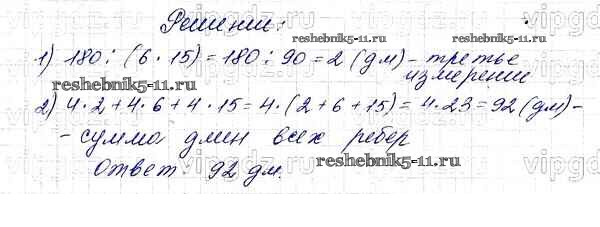 Решение:
1) 180 : (6 · 15) = 180 : 90 = 2 (дм) – третье
измерение
2) 4 · 2 + 4 · 6 + 4 · 15 = 4 · (2 + 6 + 15) = 4 · 23 = 92 (дм) –
– сумма длин всех ребер
Ответ: 92 дм.
reshebnik5-11.ru
reshebnik5-11.ru
reshebnik5-11.ru
reshebnik5-11.ru